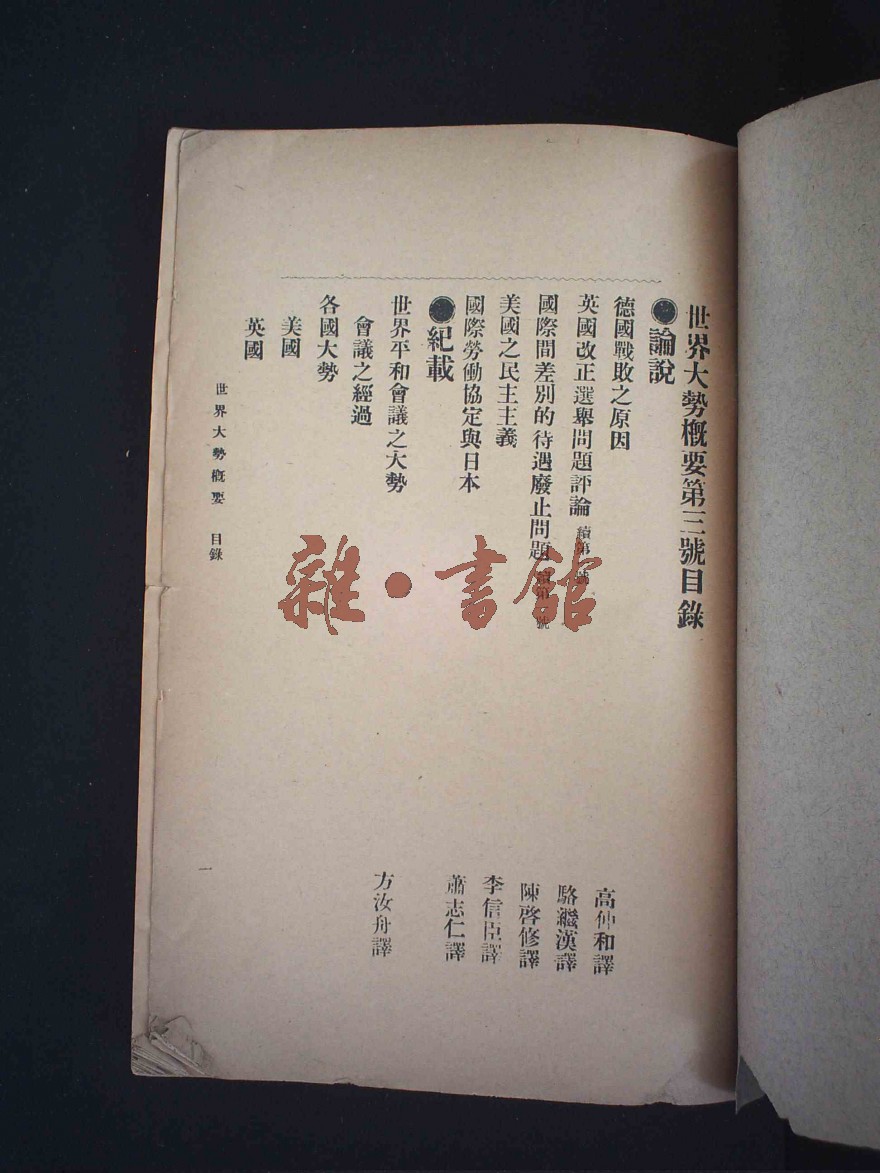 世界大勢概要第三號目錄
●論說
德國戰敗之原因 高仲和譯
英國改正選舉問題評論 續第 號 駱繼漢譯
國際間差別的待遇廢止問題 續第 號 陳啓修譯
美國之民主主義 李信臣譯
國際勞働協定與日本 蕭志仁譯
●紀載
世界平和會議之大勢 方汝舟譯
會議之經過
各國大勢
美國
英國
世界大勢概要 目錄 一
雜·書館